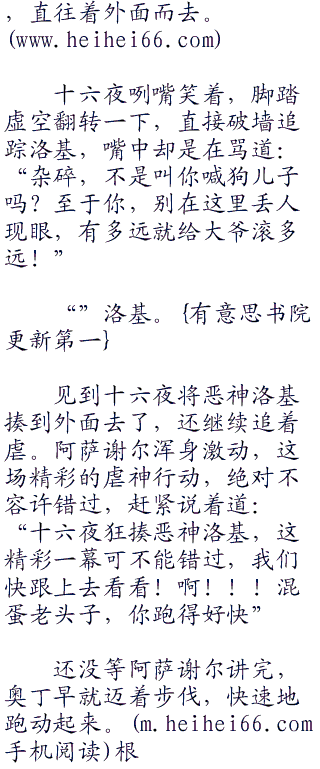 ，直往着外面而去。
(www.heihei66.com)
十六夜咧嘴笑着，脚踏
虚空翻转一下，直接破墙追
踪洛基，嘴中却是在骂道：
“杂碎，不是叫你喊狗儿子
吗？至于你，别在这里丢人
现眼，有多远就给大爷滚多
远！”
“”洛基。{有意思书院
更新第一}
见到十六夜将恶神洛基
揍到外面去了，还继续追着
虐。阿萨谢尔浑身激动，这
场精彩的虐神行动，绝对不
容许错过，赶紧说着道：
“十六夜狂揍恶神洛基，这
精彩一幕可不能错过，我们
快跟上去看看！啊！！！混
蛋老头子，你跑得好快”
还没等阿萨谢尔讲完，
奥丁早就迈着步伐，快速地
跑动起来。(m.heihei66.com
手机阅读)根